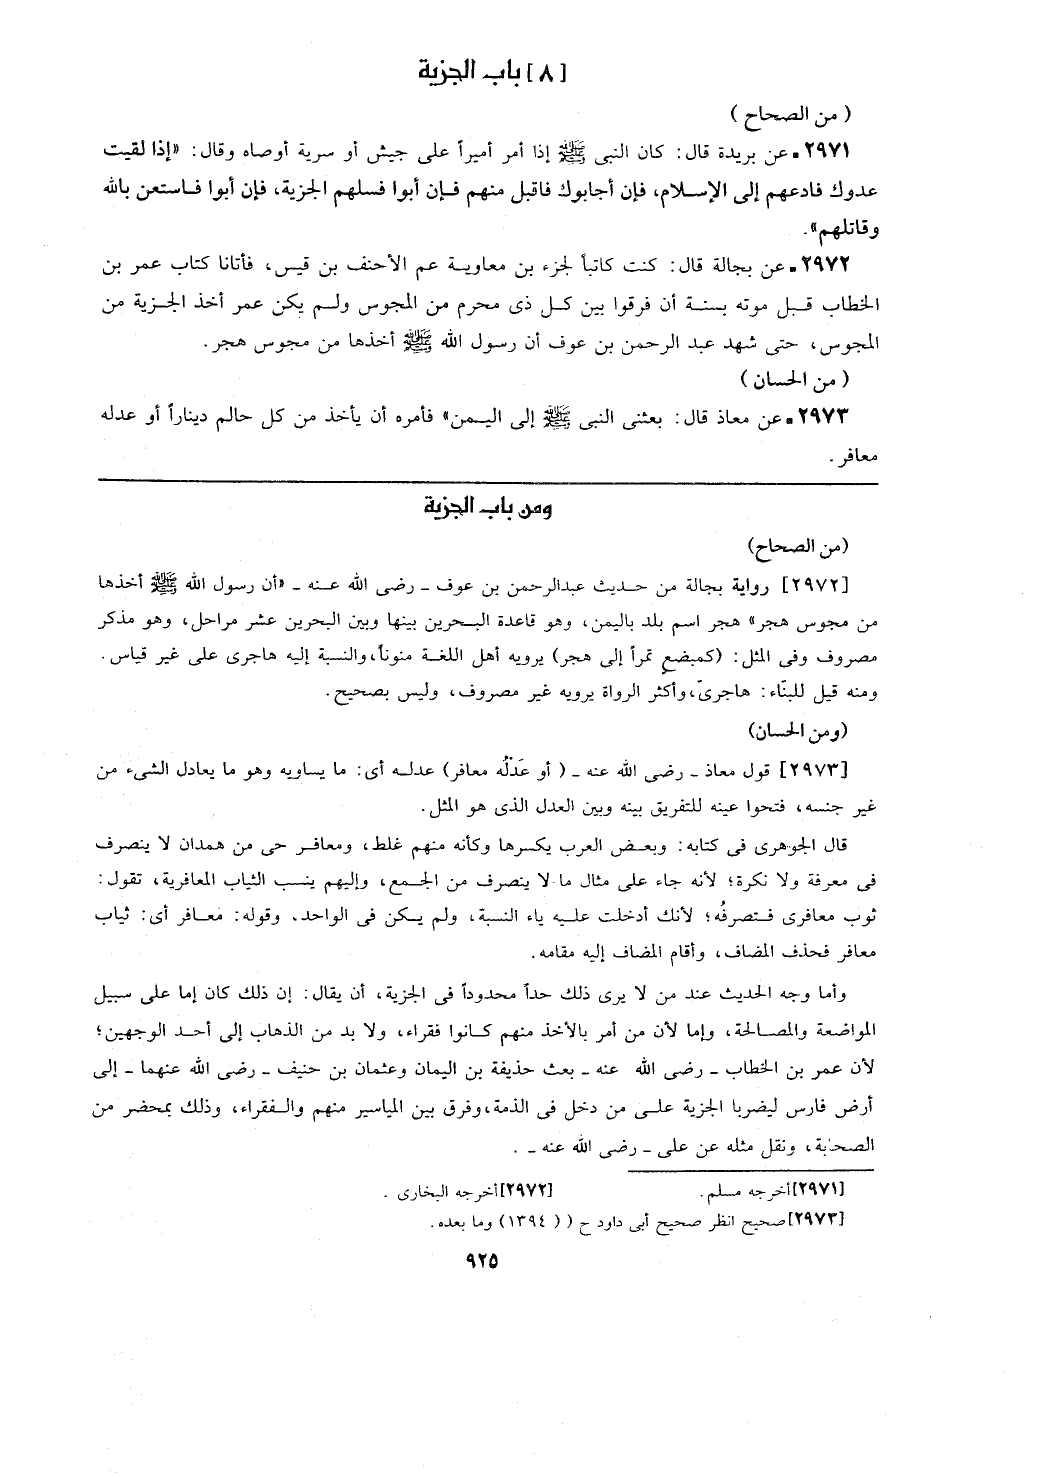 [٨] باب الجزية
( من الصحاح )
٢٩٧١ـ عن بريدة قال: كان النبى ﷺ إذا أمر أميراً على جيش أو سرية أوصاه وقال: «إذا لقيت
عدوك فادعهم إلى الإسلام، فإن أجابوك فاقبل منهم فإن أبوا فسلهم الجزية، فإن أبوا فاستعن بالله
وقاتلهم».
٢٩٧٢ـ عن بجالة قال: كنت كاتباً لجزء بن معاوية عم الأحنف بن قيس، فأتانا كتاب عمر بن
الخطاب قبل موته بسنة أن فرقوا بين كل ذى محرم من المجوس ولم يكن عمر أخذ الجزية من
المجوس، حتى شهد عبد الرحمن بن عوف أن رسول الله ﷺ أخذها من مجوس هجر.
( من الحسان )
٢٩٧٣ـ عن معاذ قال: بعثنى النبى ﷺ إلى اليمن» فأمره أن يأخذ من كل حالم ديناراً أو عدله
معافر.
ومن باب الجزية
(من الصحاح)
[٢٩٧٢] رواية بجالة من حديث عبدالرحمن بن عوف ـ رضى الله عنه ـ «أن رسول الله ﷺ أخذها
من مجوس هجر» هجر اسم بلد باليمن، وهو قاعدة البحرين بينها وبين البحرين عشر مراحل، وهو مذكر
مصروف وفى المثل: (كمبضعٍ تمرأ إلى هجر) يرويه أهل اللغة منوناً،والنسبة إليه هاجرى على غير قياس.
ومنه قيل للبنّاء: هاجرىّ،وأكثر الرواة يرويه غير مصروف، وليس بصحيح.
(ومن الحسان)
[٢٩٧٣] قول معاذ ـ رضى الله عنه ـ ( أو عَدْلُه معافر) عدله أى: ما يساويه وهو ما يعادل الشىء من
غير جنسه، فتحوا عينه للتفريق بينه وبين العدل الذى هو المثل.
قال الجوهرى فى كتابه: وبعض العرب يكسرها وكأنه منهم غلط، ومعافر حى من همدان لا ينصرف
فى معرفة ولا نكرة؛ لأنه جاء على مثال ما لا ينصرف من الجمع، وإليهم ينسب الثياب المعافرية، تقول:
ثوب معافرى فتصرفُه؛ لأنك أدخلت عليه ياء النسبة، ولم يكن فى الواحد. وقوله: معافر أى: ثياب
معافر فحذف المضاف، وأقام المضاف إليه مقامه.
وأما وجه الحديث عند من لا يرى ذلك حداً محدوداً فى الجزية، أن يقال: إن ذلك كان إما على سبيل
المواضعة والمصالحة، وإما لأن من أمر بالأخذ منهم كانوا فقراء، ولا بد من الذهاب إلى أحد الوجهين؛
لأن عمر بن الخطاب ـ رضى الله عنه ـ بعث حذيفة بن اليمان وعثمان بن حنيف ـ رضى الله عنهما ـ إلى
أرض فارس ليضربا الجزية على من دخل فى الذمة،وفرق بين المياسير منهم والفقراء، وذلك بمحضر من
الصحابة، ونقل مثله عن على ـ رضى الله عنه ـ .
[٢٩٧١]أخرجه مسلم. [٢٩٧٢]أخرجه البخارى .
[٢٩٧٣]صحيح انظر صحيح أبى داود ح ( ( ١٣٩٤) وما بعده.
٩٢٥